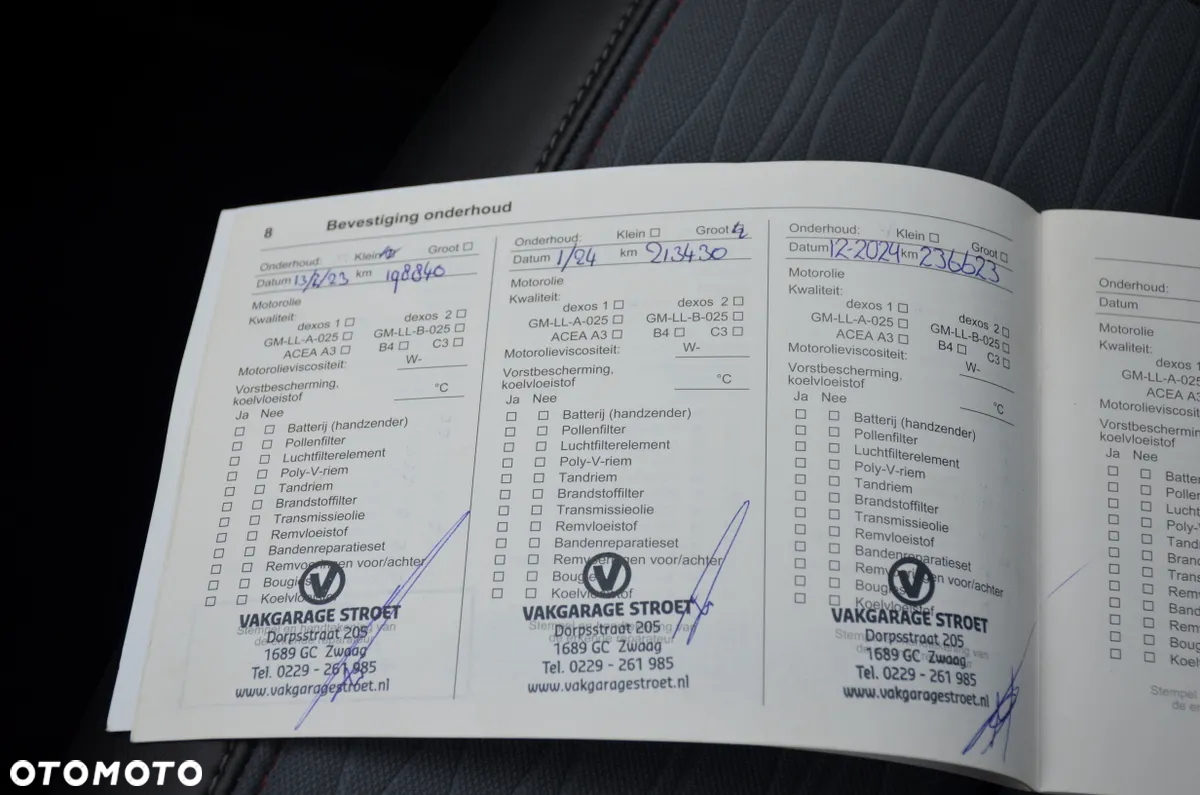 8 Bevestiging onderhoud
Onderhoud: Klein Groot
Datum 13/2/23 km 198840
Motorolie
Kwaliteit:
dexos 1 dexos 2
GM-LL-A-025 GM-LL-B-025
ACEA A3 B4 C3
Motorolieviscositeit: W-
Vorstbescherming,
koelvloeistof °C
Ja Nee
Batterij (handzender)
Pollenfilter
Luchtfilterelement
Poly-V-riem
Tandriem
Brandstoffilter
Transmissieolie
Remvloeistof
Bandenreparatieset
Remvoeringen voor/achter
Bougies
Koelvloeistof
VAKGARAGE STROET
Stempel en handtekening van
de erkende reparateur
Dorpsstraat 205
1689 GC Zwaag
Tel. 0229 - 261 985
www.vakgaragestroet.nl
Onderhoud: Klein Groot
Datum 1/24 km 213430
Motorolie
Kwaliteit:
dexos 1 dexos 2
GM-LL-A-025 GM-LL-B-025
ACEA A3 B4 C3
Motorolieviscositeit: W-
Vorstbescherming,
koelvloeistof °C
Ja Nee
Batterij (handzender)
Pollenfilter
Luchtfilterelement
Poly-V-riem
Tandriem
Brandstoffilter
Transmissieolie
Remvloeistof
Bandenreparatieset
Remvoeringen voor/achter
Bougies
Koelvloeistof
VAKGARAGE STROET
Stempel en handtekening van
de erkende reparateur
Dorpsstraat 205
1689 GC Zwaag
Tel. 0229 - 261 985
www.vakgaragestroet.nl
Onderhoud: Klein Groot
Datum 12-2024 km 236623
Motorolie
Kwaliteit:
dexos 1 dexos 2
GM-LL-A-025 GM-LL-B-025
ACEA A3 B4 C3
Motorolieviscositeit: W-
Vorstbescherming,
koelvloeistof °C
Ja Nee
Batterij (handzender)
Pollenfilter
Luchtfilterelement
Poly-V-riem
Tandriem
Brandstoffilter
Transmissieolie
Remvloeistof
Bandenreparatieset
Remvoeringen voor/achter
Bougies
Koelvloeistof
VAKGARAGE STROET
Stempel en handtekening van
de erkende reparateur
Dorpsstraat 205
1689 GC Zwaag
Tel. 0229 - 261 985
www.vakgaragestroet.nl
Onderhoud:
Datum
Motorolie
Kwaliteit:
dexos 1
GM-LL-A-025
ACEA A3
Motorolieviscosit
Vorstbescherming
koelvloeistof
Ja Nee
Batte
Pollen
Lucht
Poly-
Tand
Bran
Tran
Rem
Band
Rem
Boug
Koel
Stempel
de er
OTOMOTO